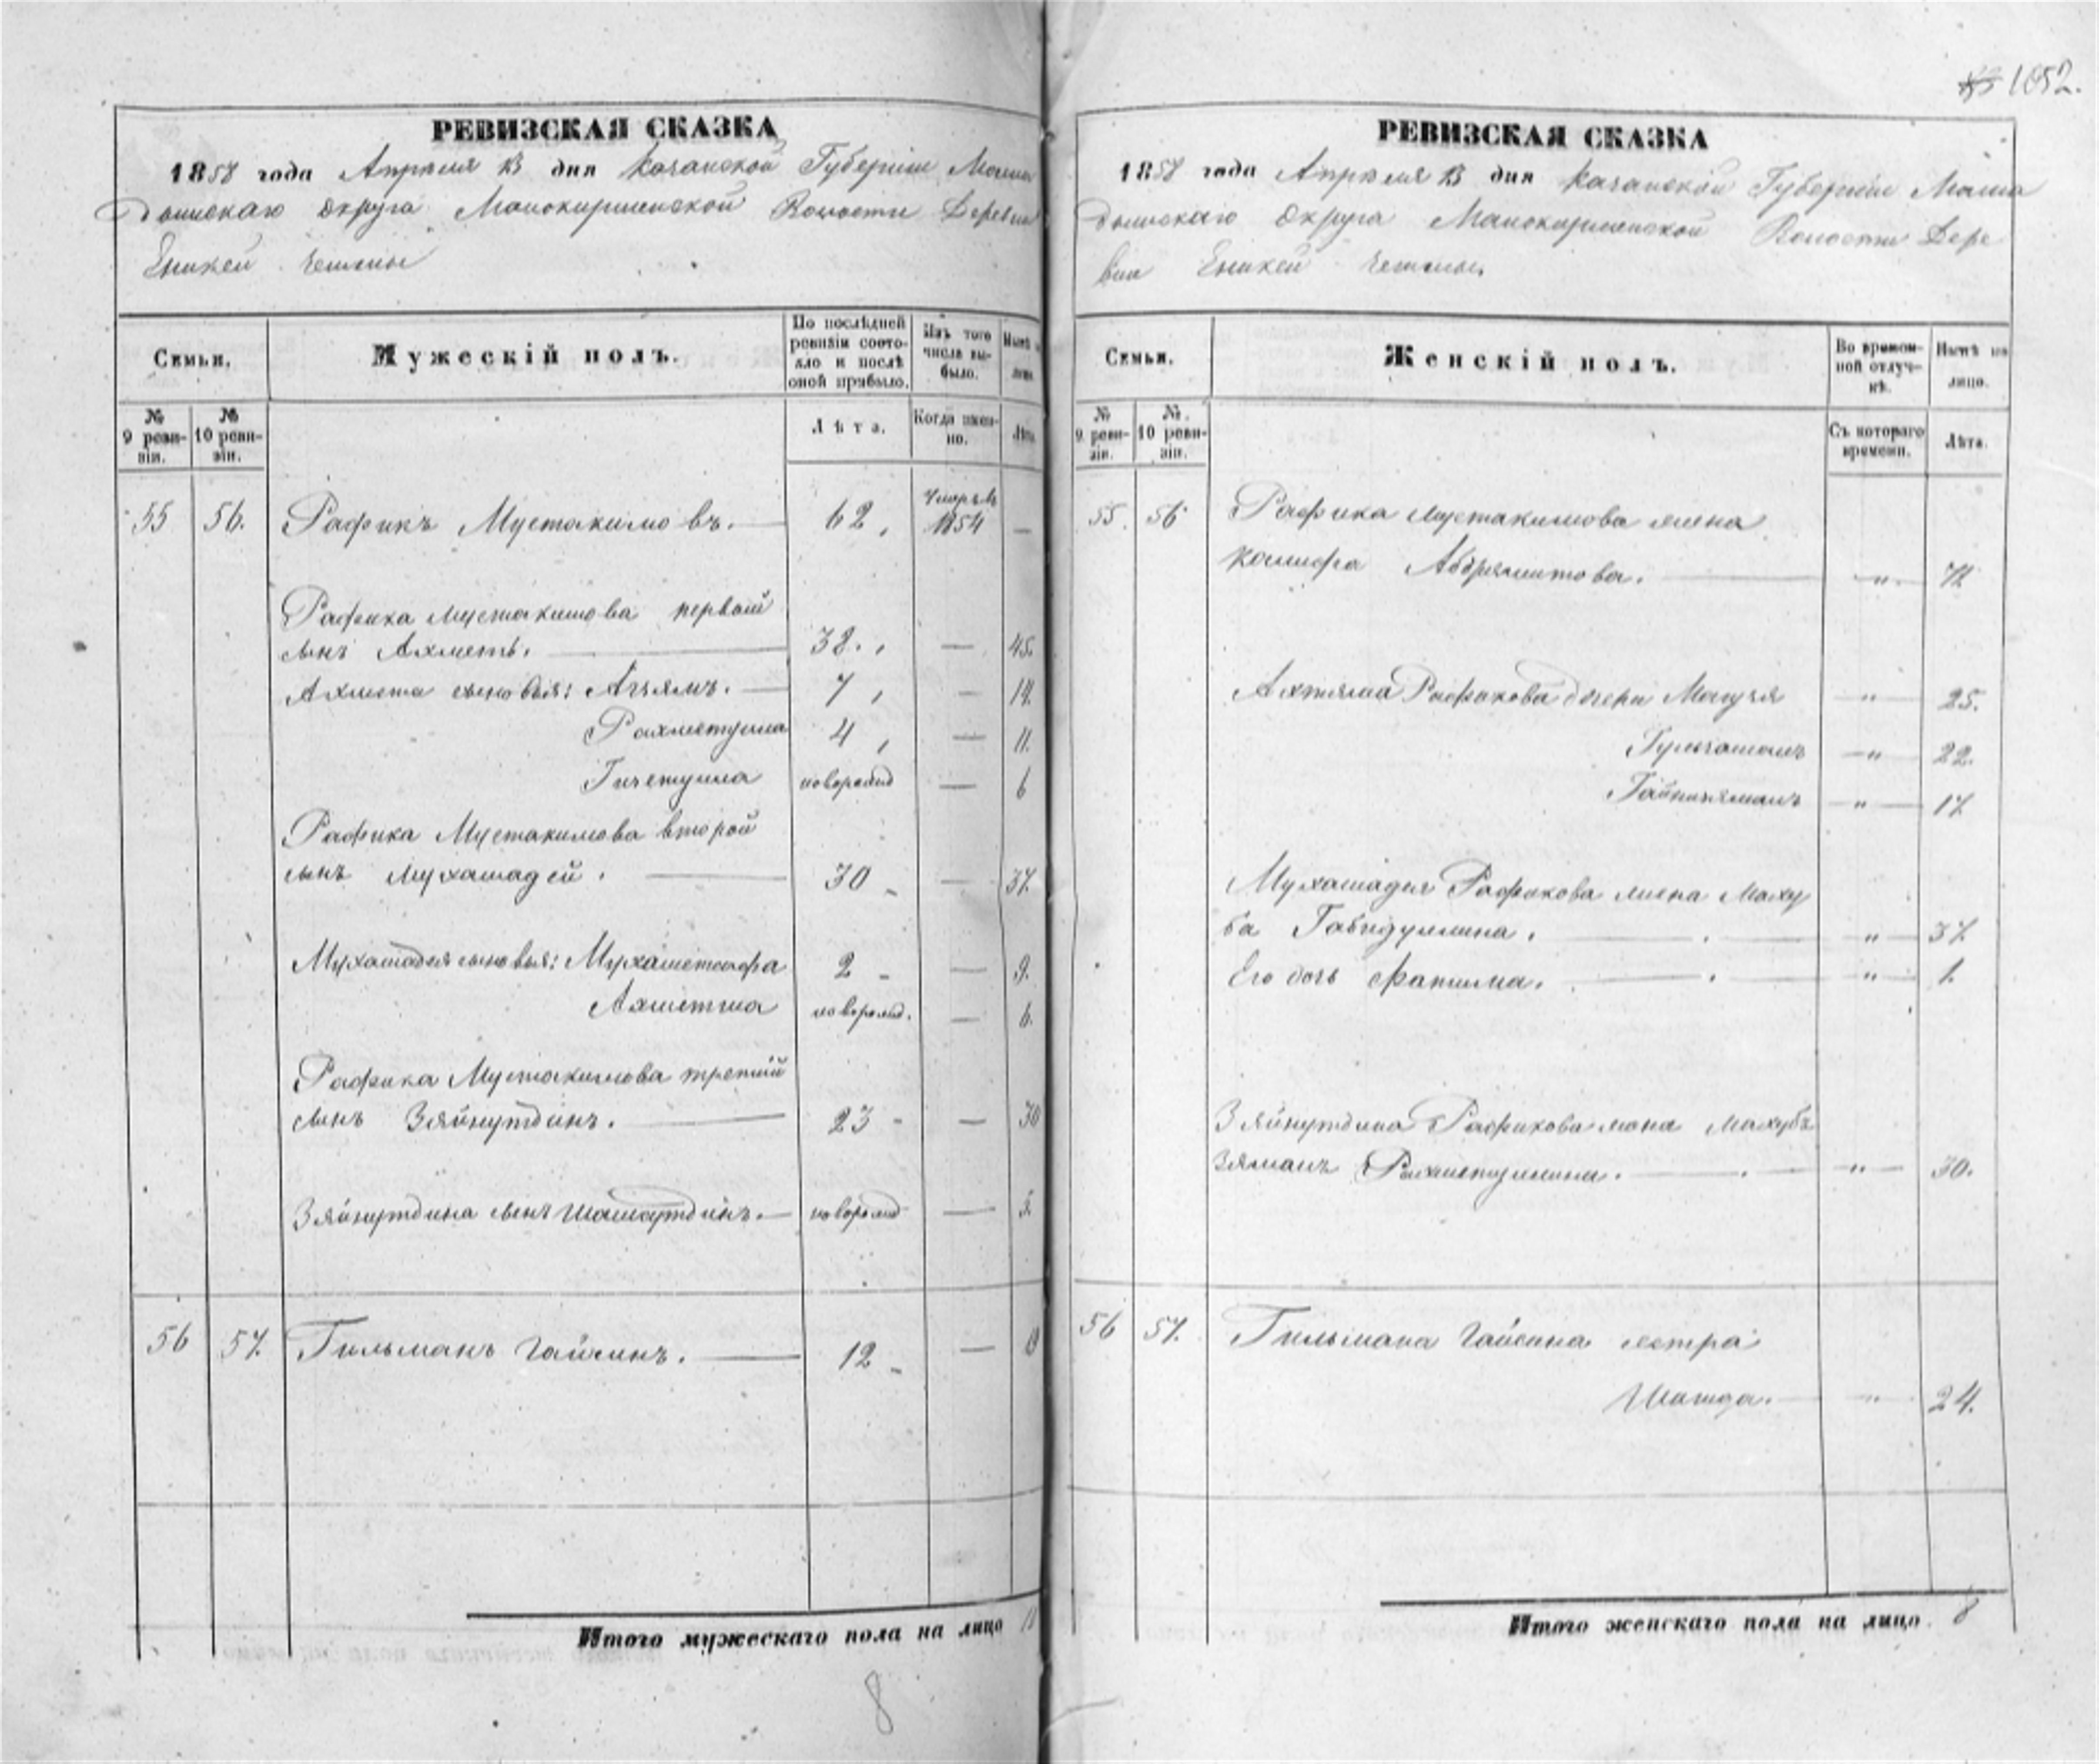 1052.
РЕВИЗСКАЯ СКАЗКА
1858 года Апреля 13 дня Казанской Губернiи Мама
дышскаго округа Манокирменской Волости Деревни
Еникей Чешмы
Семьи.
Мужескiй полъ.
По послѣдней ревизiи состояло и послѣ оной прибыло.
Изъ того числа выбыло.
Нынѣ на лицо.
№ 9 ревизiи.
№ 10 ревизiи.
Лѣта.
Когда именно.
Лѣта.
55 56. Рафикъ Мустакимовъ. 62, умеръ въ 1854 —
Рафика Мустакимова первый
сынъ Ахметь. 38., — 45.
Ахмета сыновья: Агзямъ. 7, — 14.
Рахметулла 4, — 11.
Гизетулла новорожд — 6
Рафика Мустакимова второй
сынъ Мухамадей. 30 — 37.
Мухамадея сыновья: Мухаметсафа 2 — 9.
Ахметша новорожд. — 6.
Рафика Мустакимова третiй
сынъ Зяйнутдинъ. 23 — 30
Зяйнутдина сынъ Шамсутдинъ. новорожд — 5.
56 57. Гильманъ Гайсинъ. 12 — 19
Итого мужескаго пола на лицо 11
8
РЕВИЗСКАЯ СКАЗКА
1858 года Апреля 13 дня Казанской Губернiи Мама
дышскаго округа Манокирменской Волости Дере
вни Еникей Чешмы.
Семьи.
Женскiй полъ.
Во временной отлучкѣ.
Нынѣ на лицо.
№ 9 ревизiи.
№ 10 ревизiи.
Съ котораго времени.
Лѣта.
55. 56 Рафика Мустакимова жена
Абдряшитова. " 71
Рафикова дочери " 25.
" 22.
" 17
Мухамадея Рафикова жена Маху
ба Габидуллина. " 37
Его дочь Фатима. " 1.
Зяйнутдина Рафикова жена Махубъ
Зяманъ Рахметуллина. " 30.
56 57. Гильмана Гайсина сестра
" 24.
Итого женскаго пола на лицо. 8